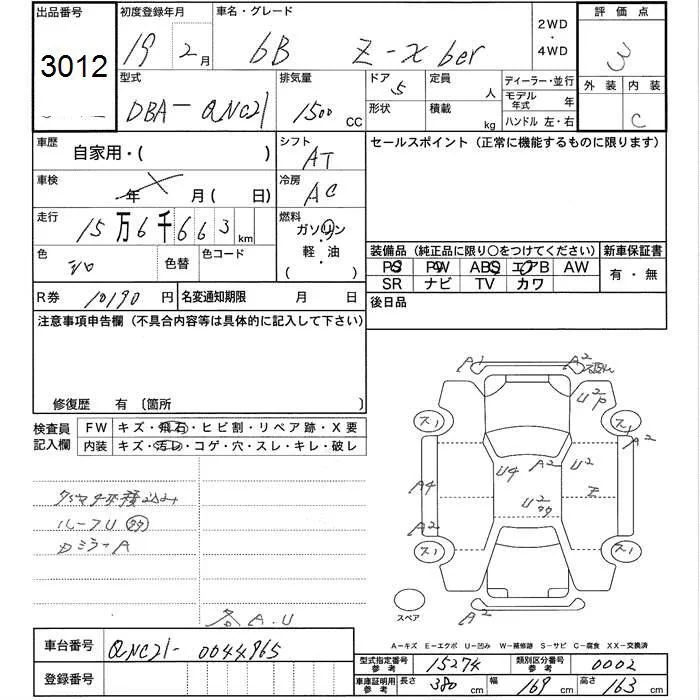 出品番号 初度登録年月 車名・グレード 2WD ・ 4WD 評価点
3012 19 2月 bB Z-X ber 3
外装 内装
C
型式 排気量 ドア 定員 ディーラー・並行
DBA-QNC21 1500 CC 5 人 モデル年式 年
形状 積載 kg ハンドル 左・右
車歴 自家用・( ) シフト AT
セールスポイント (正常に機能するものに限ります)
車検 年 月( 日) 冷房 AC
走行 15万6千663 km 燃料 ガソリン・軽・油 ( )
色 シロ 色替 色コード
装備品 (純正品に限り○をつけてください) 新車保証書
PS PW ABS エアB AW 有・無
SR ナビ TV カワ
R券 10190 円 名変通知期限 月 日
後日品
注意事項申告欄 (不具合内容等は具体的に記入して下さい)
修復歴 有 〔箇所 〕
検査員記入欄 FW キズ・飛石・ヒビ割・リペア跡・X要
内装 キズ・汚レ・コゲ・穴・スレ・キレ・破レ
ルーフU
ミラーA
各A.U
A1 A2
U2P
ス1 ス1
A2
A2 U2
U4
A4
U2
A2
ス1 ス1
A2
スペア
A-キズ E-エクボ U-凹み W-補修跡 S-サビ C-腐食 XX-交換済
車台番号 QNC21-0044965
型式指定番号参考 15274 類別区分番号参考 0002
登録番号
車庫証明用参考 長さ 380 cm 幅 169 cm 高さ 163 cm